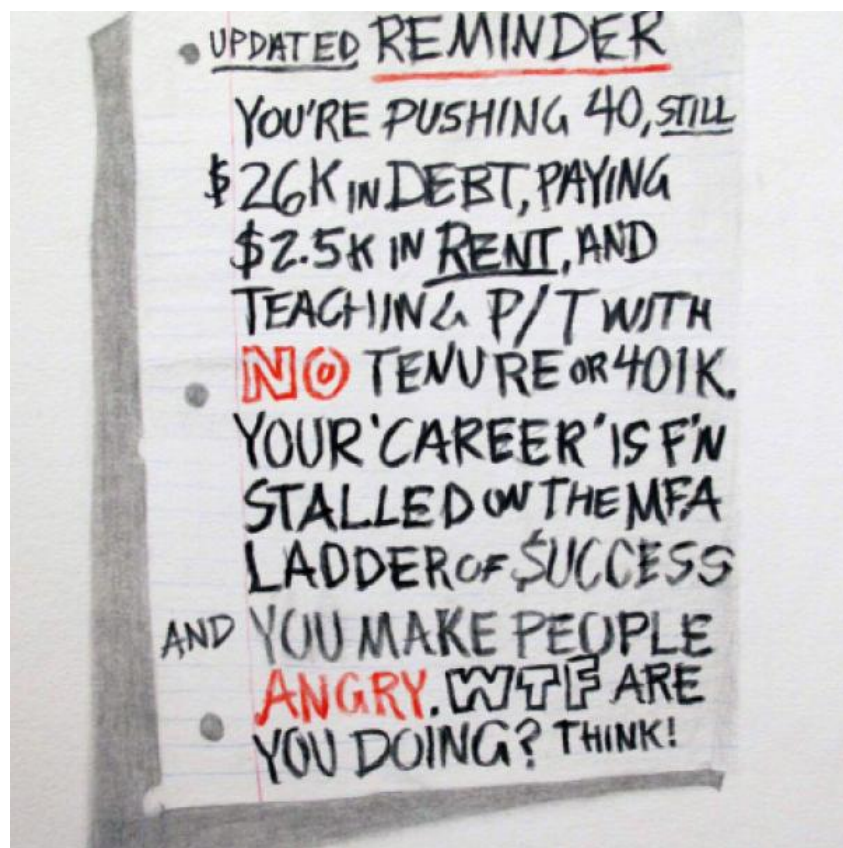 UPDATED REMINDER
YOU'RE PUSHING 40, STILL
$26K IN DEBT, PAYING
$2.5K IN RENT, AND
TEACHING P/T WITH
NO TENURE OR 401K.
YOUR 'CAREER' IS F'N
STALLED ON THE MFA
LADDER OF $UCCESS
AND YOU MAKE PEOPLE
ANGRY. WTF ARE
YOU DOING? THINK!